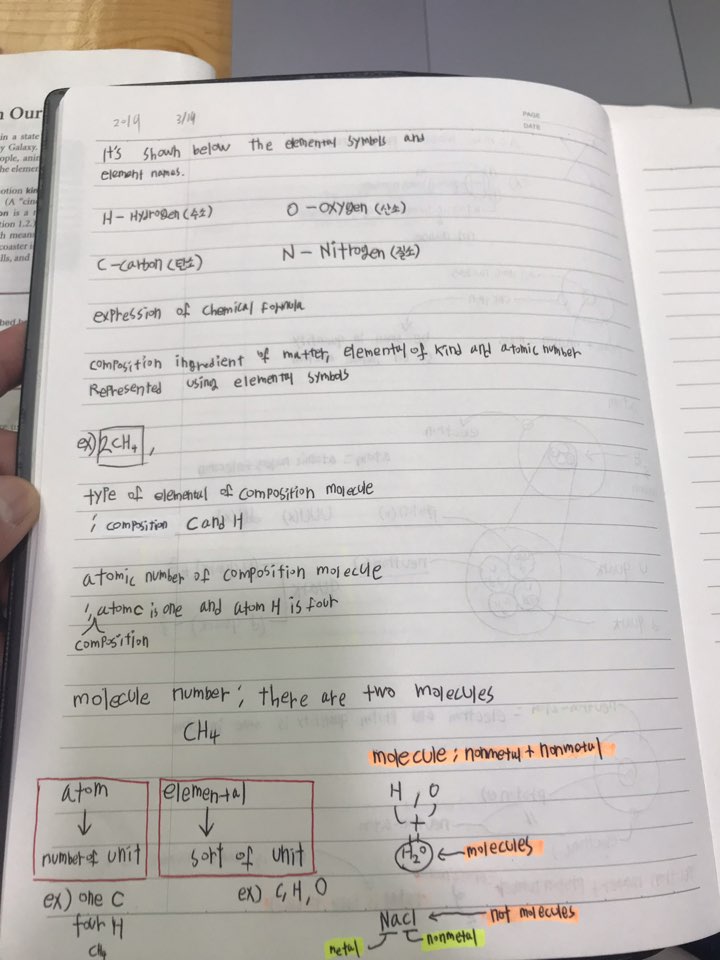 n Our
in a state
y Galaxy.
ople, anir
the elemer
otion kin
(A "cin
on is a r
tion 1.2.)
h means
coaster i
lls, and
bed b
PAGE
DATE
2019 3/14
It's shown below the elemental symbols and
element names.
H - Hydrogen (수소) O - Oxygen (산소)
C - Carbon (탄소) N - Nitrogen (질소)
expression of chemical formula
composition ingredient of matter, elemental of kind and atomic number
Represented using elemental symbols
ex) 2CH4,
type of elemental of composition molecule
; composition C and H
atomic number of composition molecule
; atom c is one and atom H is four
composition
molecule number; there are two molecules
CH4
molecule; nonmetal + nonmetal
atom elemental H, O
↓ ↓ +
number of unit sort of unit H2O ← molecules
ex) one C ex) C, H, O
four H
CH4
NaCl ← not molecules
metal nonmetal